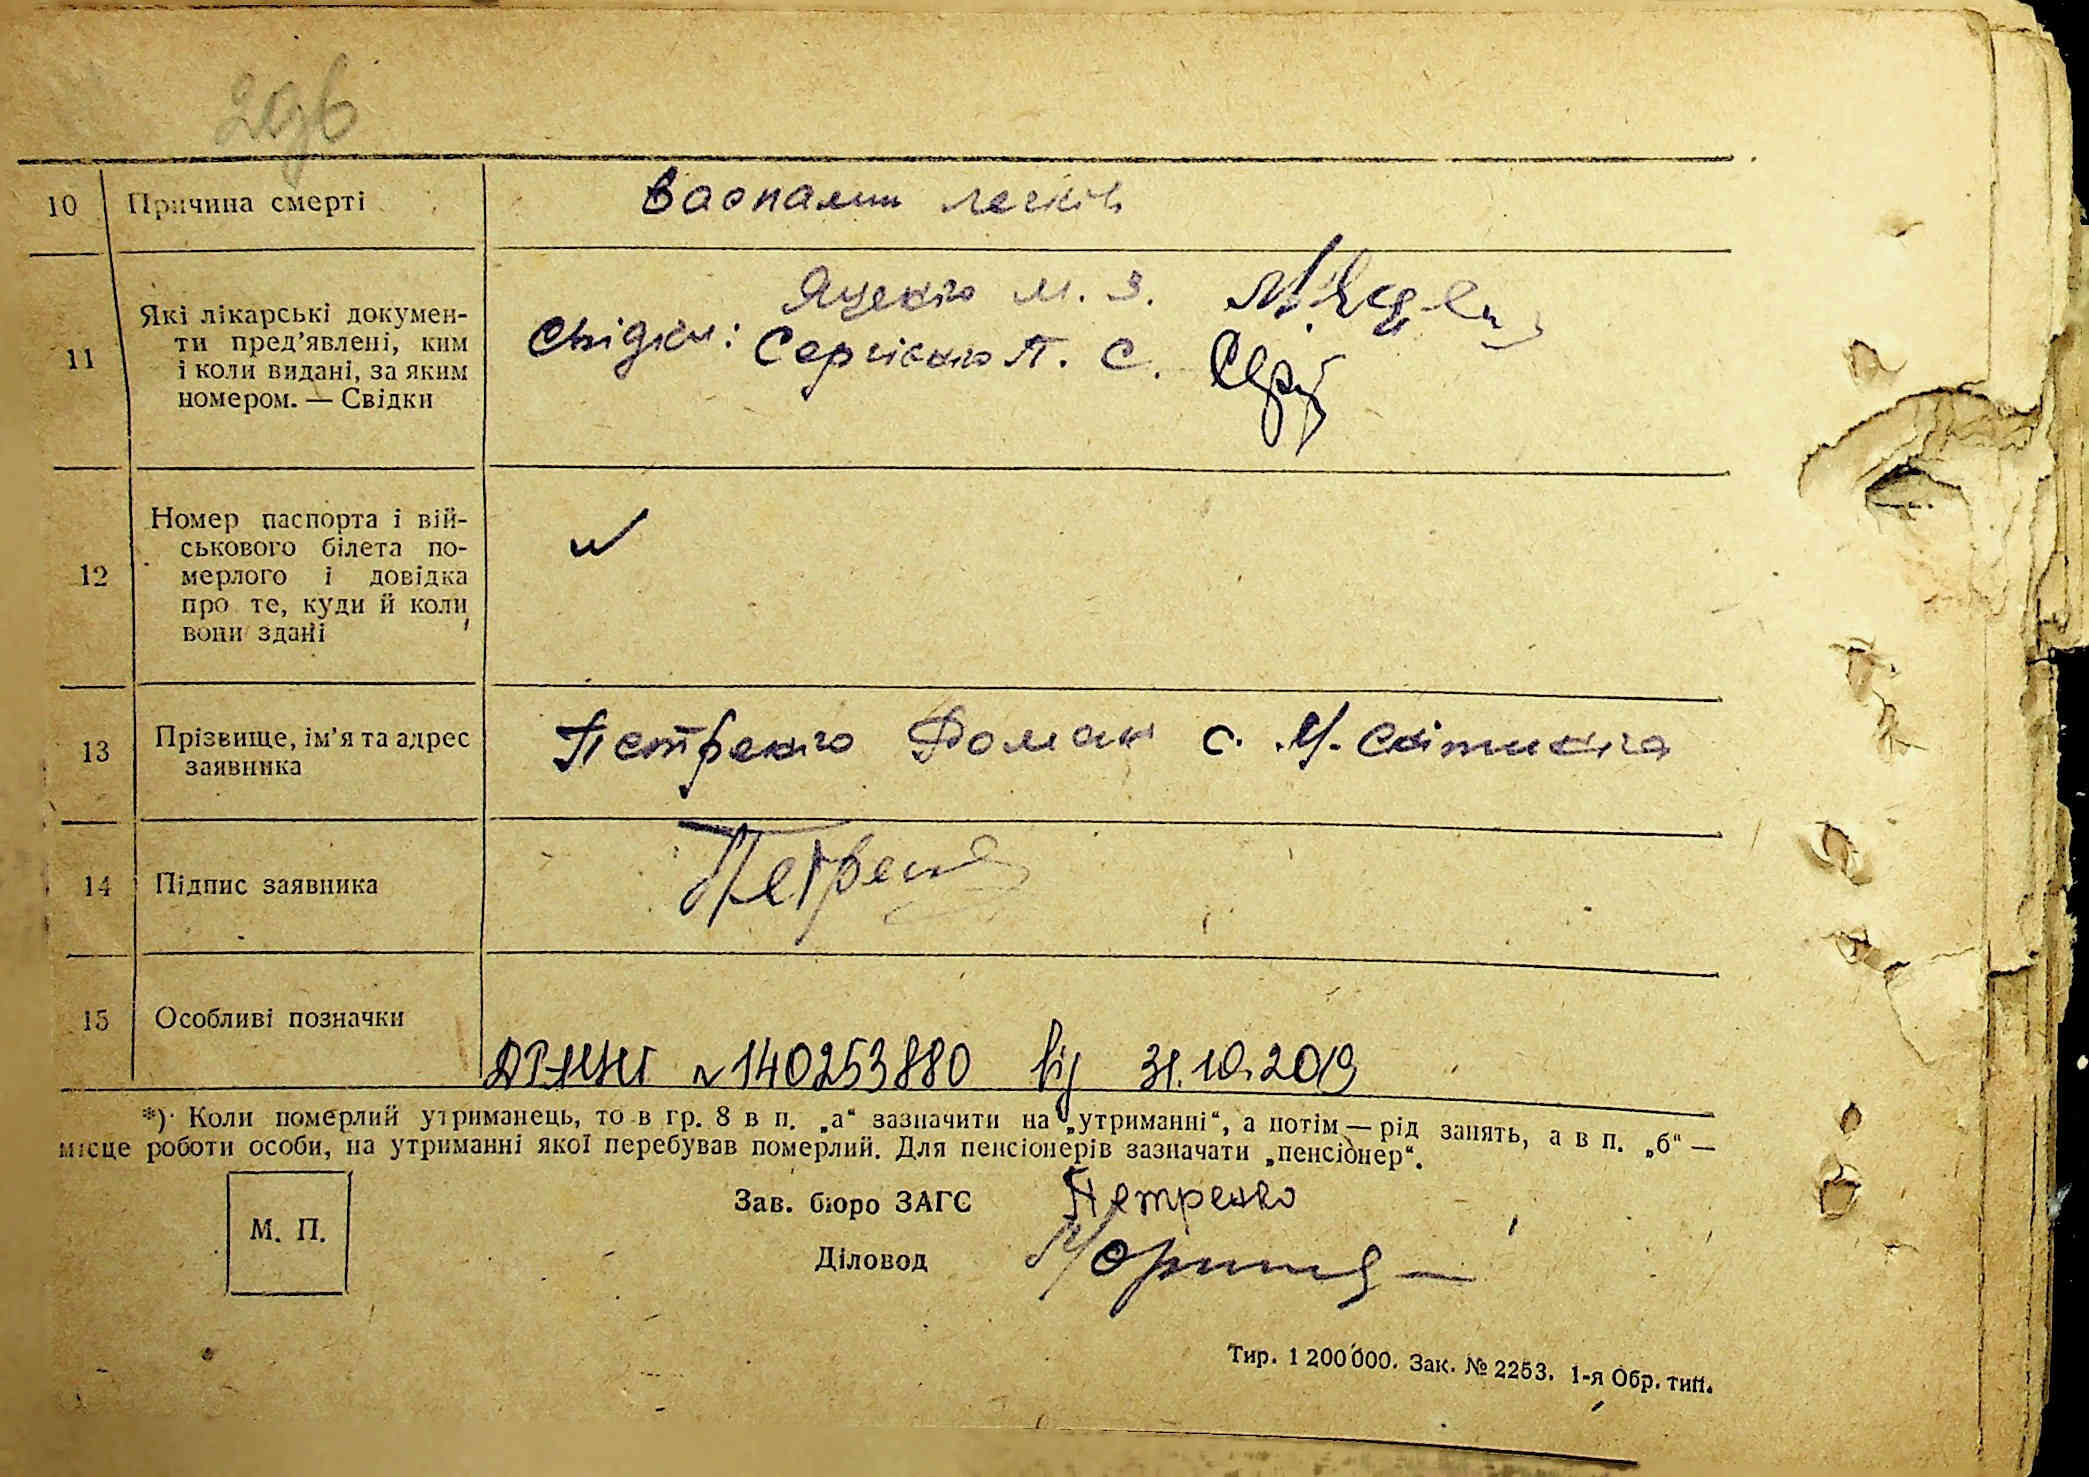 10 Причина смерті Ваопалин легків
11 Які лікарські докумен-
ти пред’явлені, ким
і коли видані, за яким
номером. — Свідки
Яценко М. З.
Свідки: Сергієнко П. С.
12 Номер паспорта і вій-
ськового білета по-
мерлого і довідка
про те, куди й коли
вони здані
13 Прізвище, ім’я та адрес
заявника
Петренко Роман с. М. Скітника
14 Підпис заявника Петренко
15 Особливі позначки
№140253880 від 31.10.2019
*) Коли померлий утриманець, то в гр. 8 в п. „а“ зазначити на „утриманні“, а потім — рід занять, а в п. „б“ —
місце роботи особи, на утриманні якої перебував померлий. Для пенсіонерів зазначати „пенсіонер“.
М. П.
Зав. бюро ЗАГС Петренко
Діловод
Тир. 1 200 000. Зак. № 2253. 1-я Обр. тип.